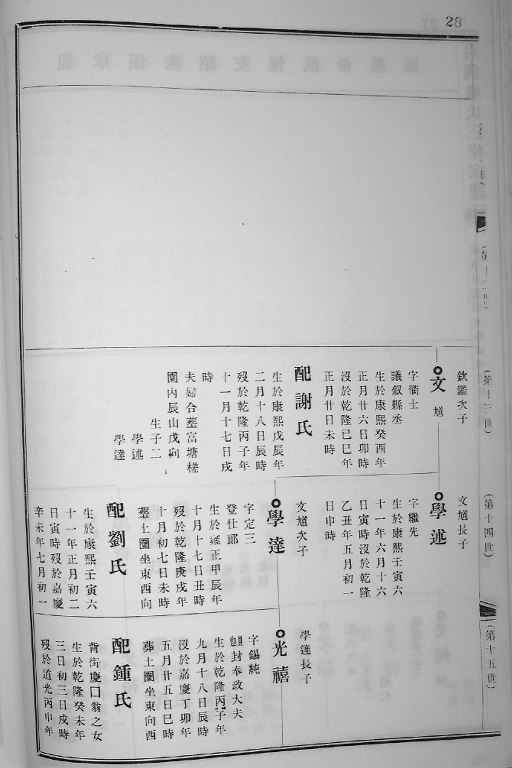 28
(第十三世)
欽鑑次子
文馗
字衢士
議叙縣丞
生於康熙癸酉年
正月廿六日卯時
沒於乾隆己巳年
正月廿日未時
配謝氏
生於康熙戊辰年
二月十八日辰時
歿於乾隆丙子年
十一月十七日戌
時
夫婦合塟富塘槎
園內辰山戌向
生子二
學述
學達
(第十四世)
文馗長子
學述
字繼先
生於康熙壬寅六
十一年六月十六
日寅時沒於乾隆
乙丑年五月初一
日申時
文馗次子
學達
字定三
登仕郎
生於雍正甲辰年
十月十七日丑時
歿於乾隆庚戌年
十月初七日未時
塟土圍坐東西向
配劉氏
生於康熙壬寅六
十一年正月初二
日寅時歿於嘉慶
辛未年七月初一
(第十五世)
學達長子
光禧
字錫純
封奉政大夫
生於乾隆丙子年
九月十八日辰時
沒於嘉慶丁卯年
五月廿五日巳時
葬土圍坐東向西
配鍾氏
背街慶口翁之女
生於乾隆癸未年
三日初三日戌時
歿於道光丙申年